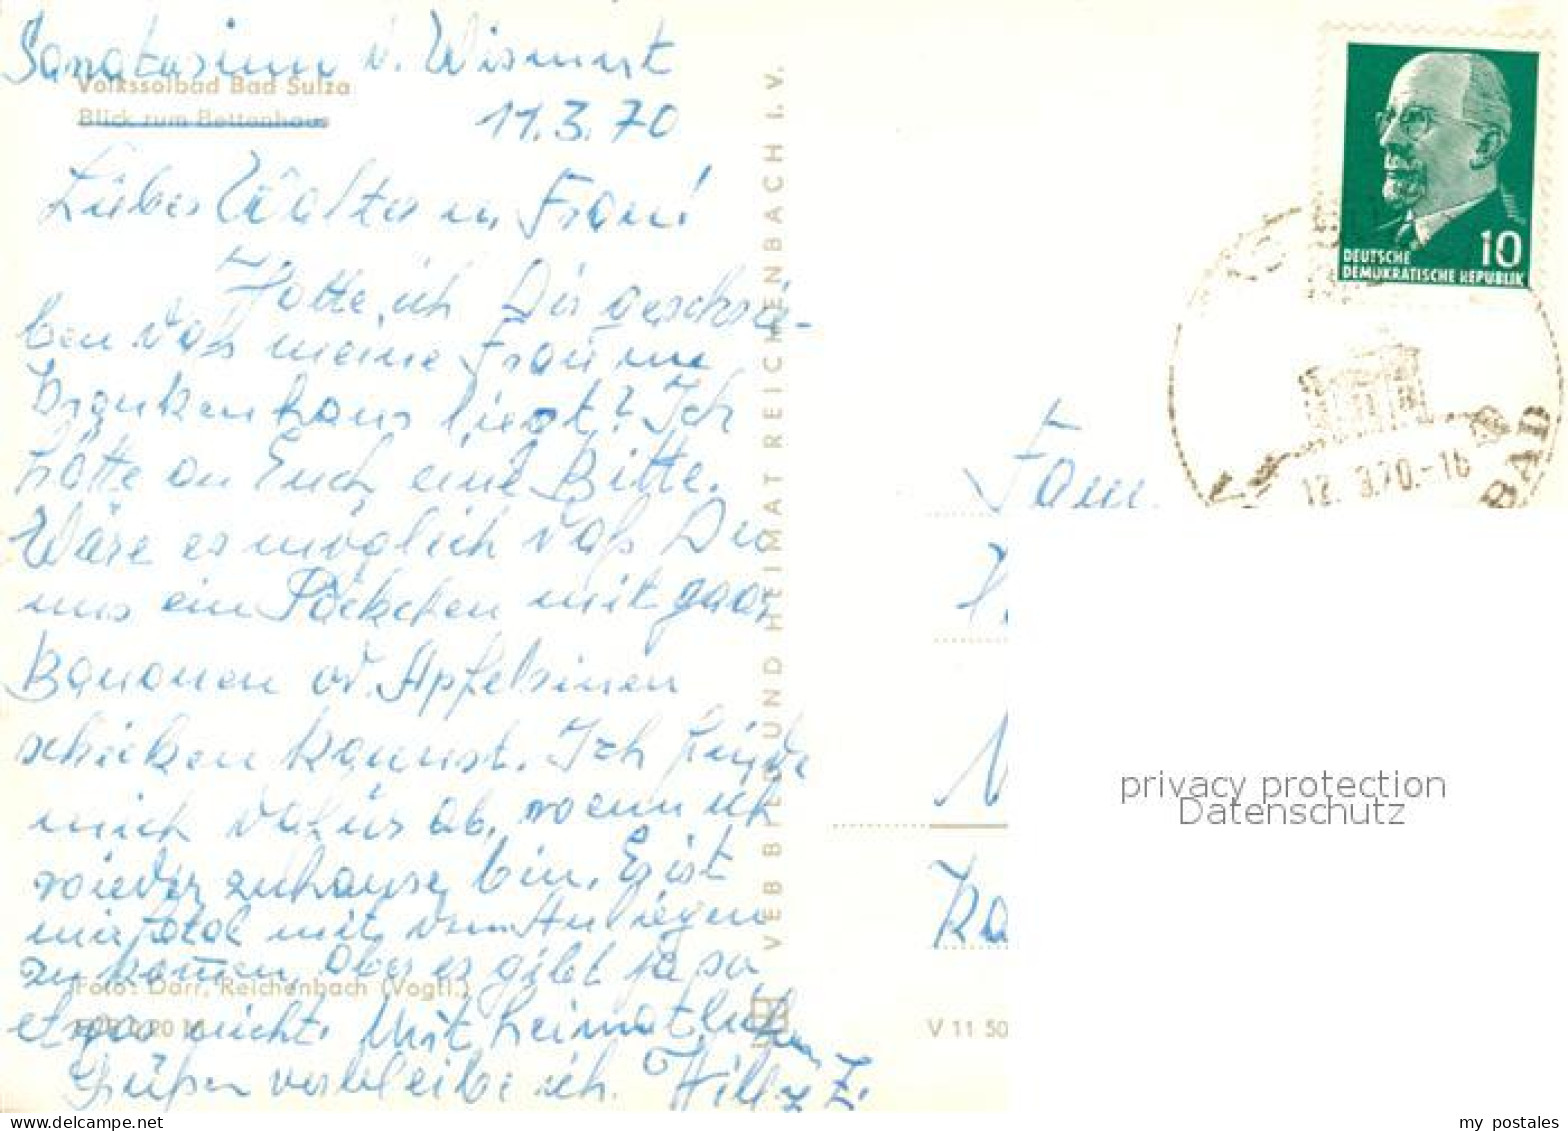 Sanatorium d. Wismut
Volkssolbad Bad Sulza
Blick zum Bettenhaus
11.3.70
Lieber Walter u. Frau!
Hatte ich Dir geschrie-
ben daß meine Frau im
Krankenhaus liegt? Ich
hätte an Euch eine Bitte.
Wäre es möglich daß Du
uns ein Päckchen mit paar
Bananen od. Apfelsinen
schicken kannst. Ich finde
mich dafür ab, wenn ich
wieder zuhause bin. Es ist
mir total mit dem Anliegen
zu kommen, aber es gibt ja so
etwas nicht. Mit heimatlichen
Grüßen verbleibe ich. Willy Z.
Foto: Darr, Reichenbach (Vogtl.)
0,20 M
VEB BILD UND HEIMAT REICHENBACH I. V.
V 11 50
10
DEUTSCHE
DEMOKRATISCHE REPUBLIK
12. 3.70.-16
BAD
Fam.
H.
Ka
privacy protection
Datenschutz
my_postales